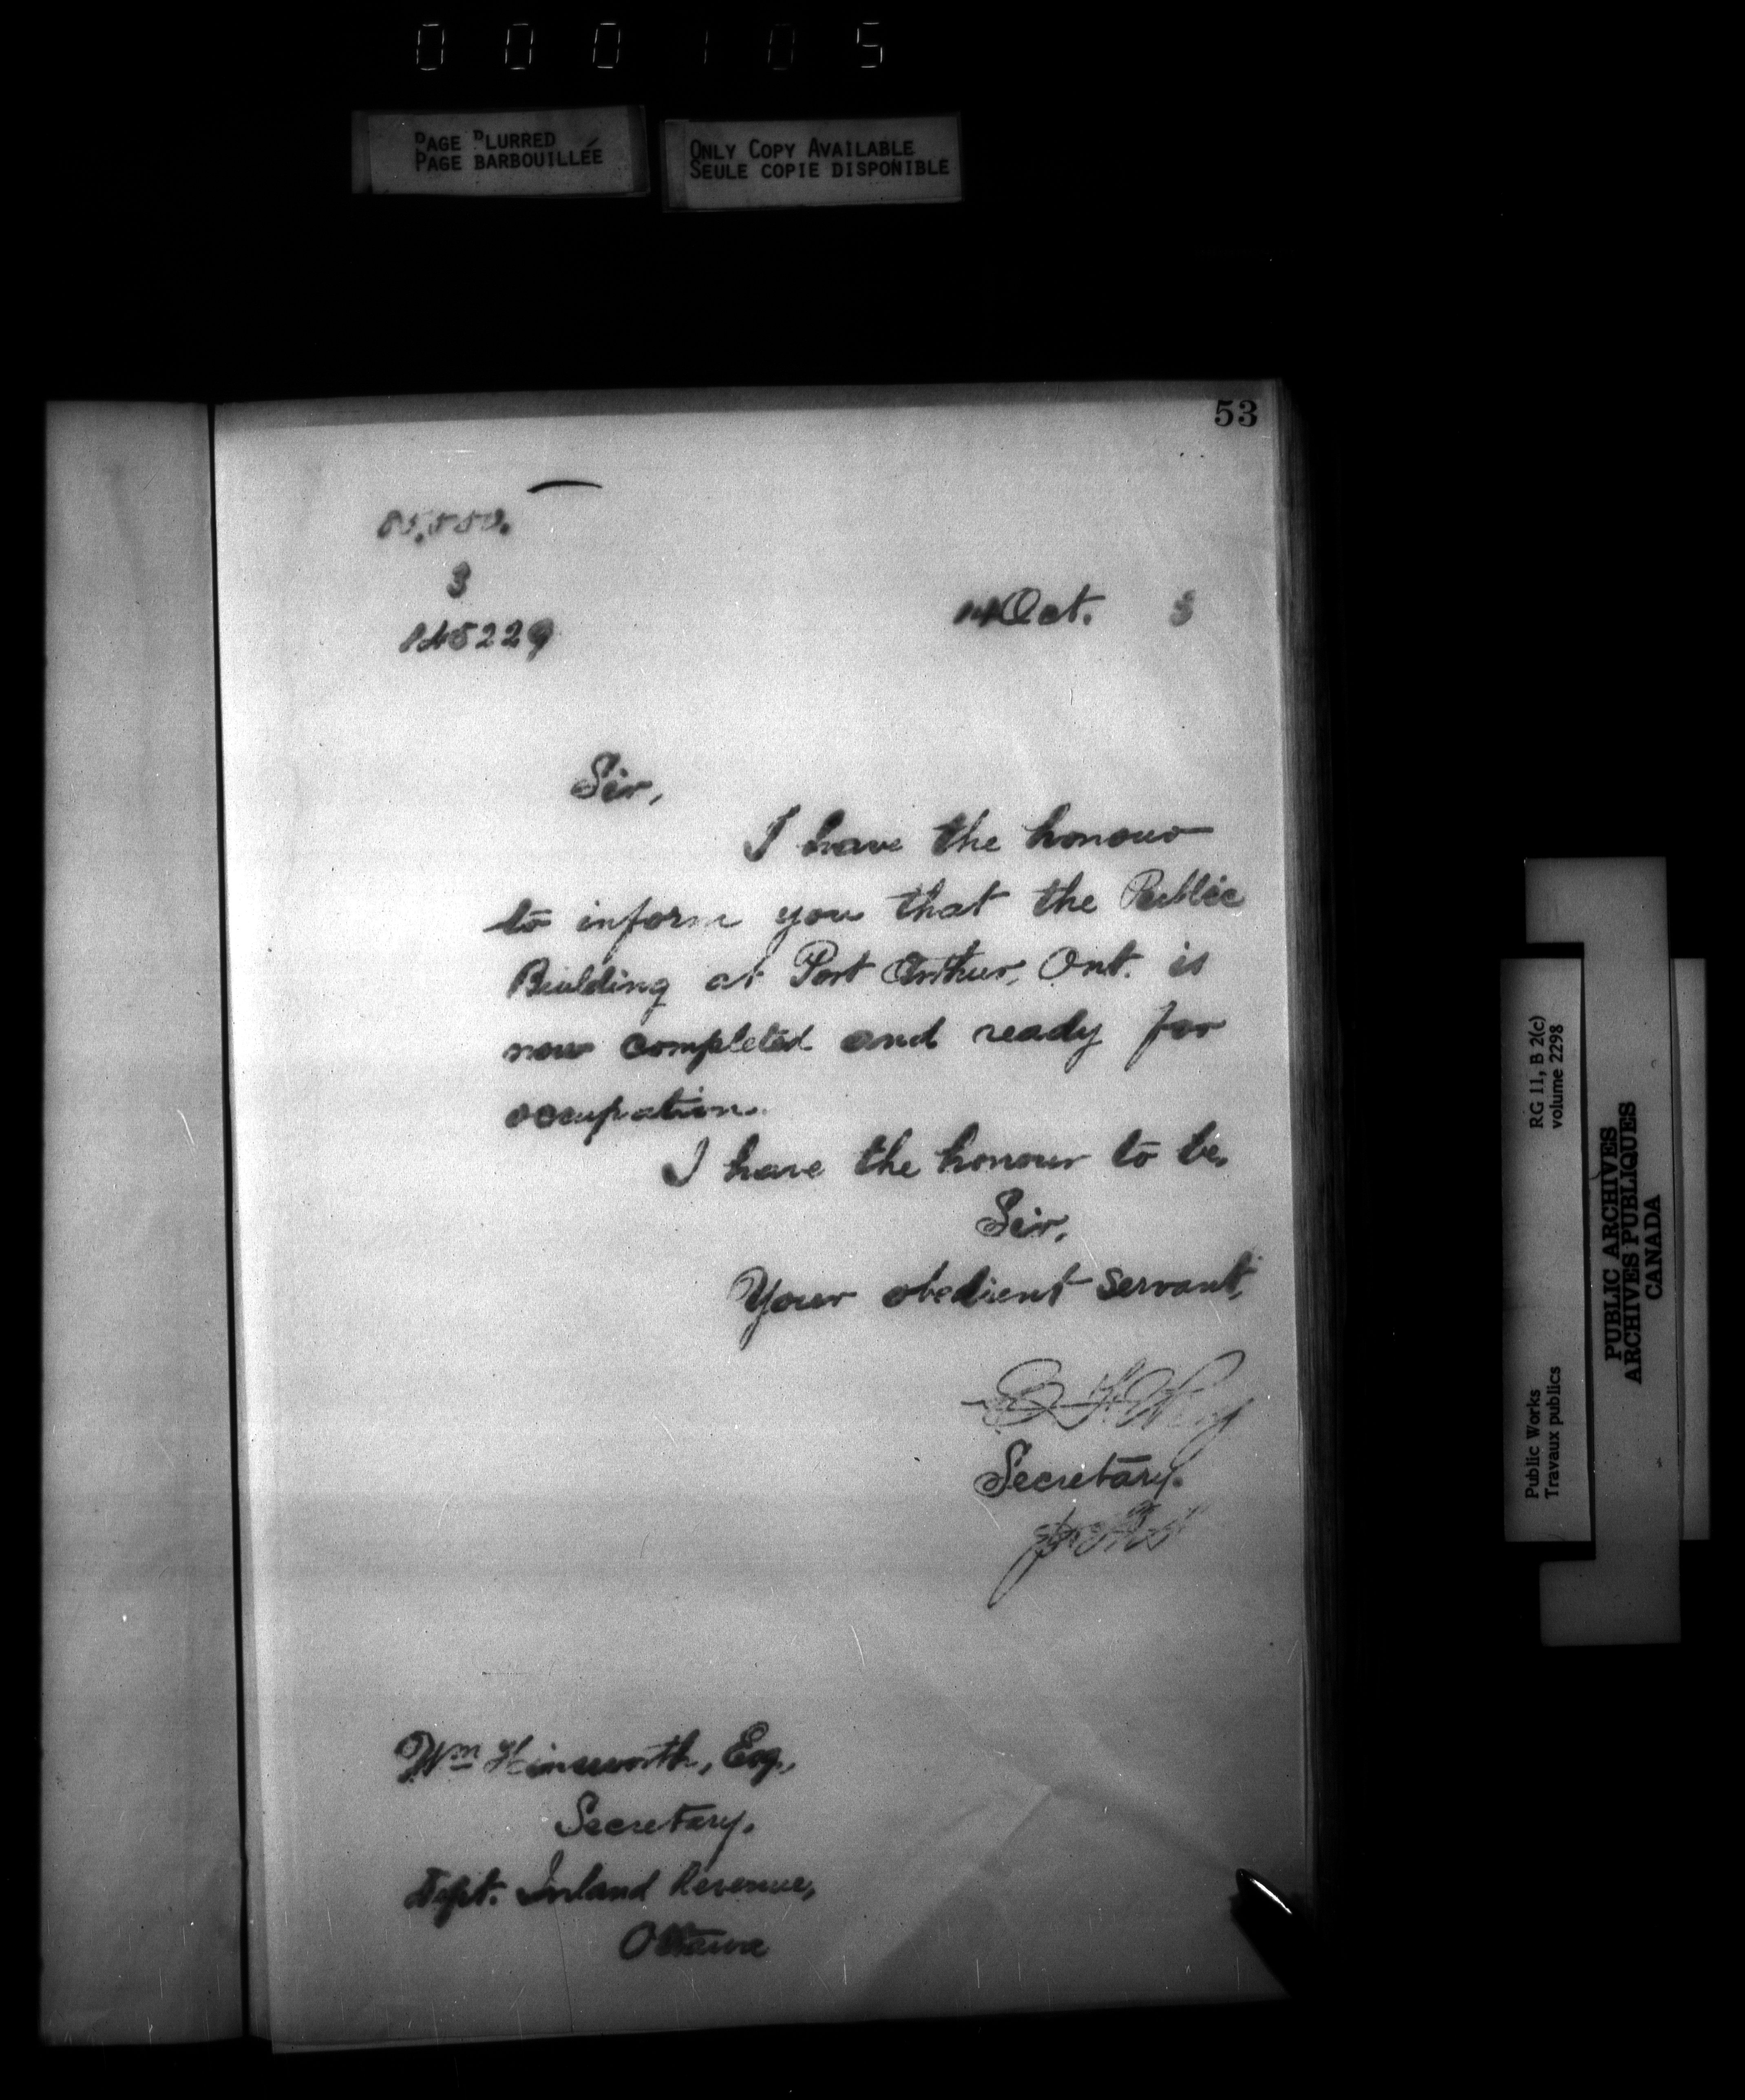 000105
PAGE BLURRED
PAGE BARBOUILLÉE
ONLY COPY AVAILABLE
SEULE COPIE DISPONIBLE
53
3
145229
Oct. 3
Sir,
I have the honour
to inform you that the Public
Building at Port Arthur, Ont. is
now completed and ready for
occupation.
I have the honour to be,
Sir,
Your obedient servant,
Secretary.
Wm Himsworth, Esq.,
Secretary.
Dept. Inland Revenue,
Ottawa
Public Works
Travaux publics
RG 11, B 2(c)
volume 2298
PUBLIC ARCHIVES
ARCHIVES PUBLIQUES
CANADA